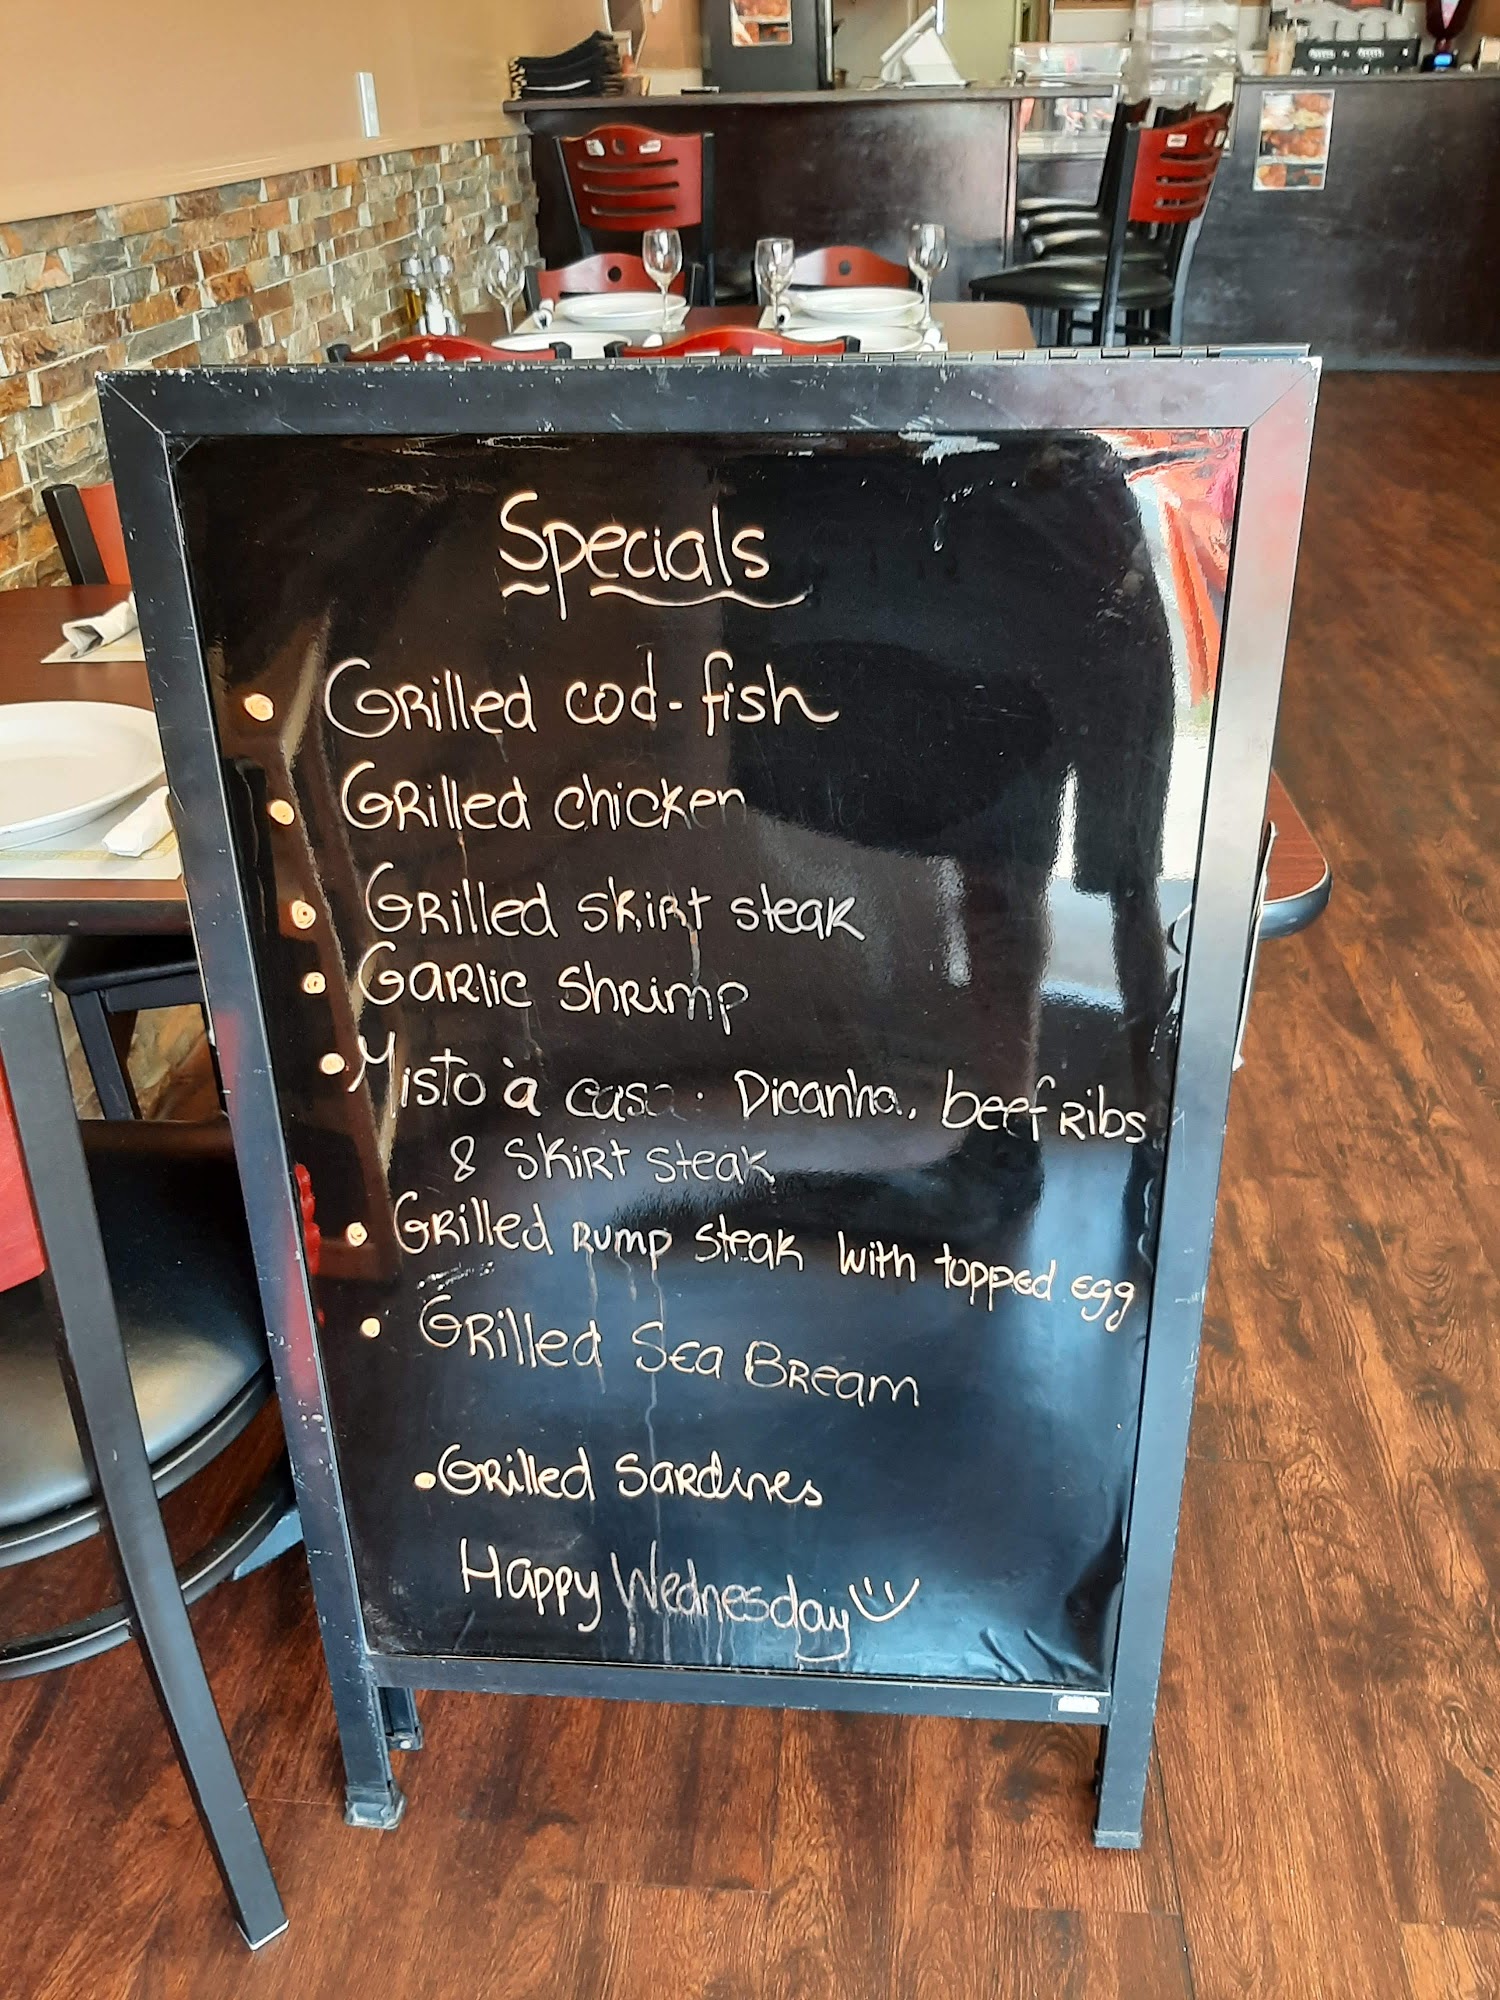 Specials
• Grilled cod-fish
• Grilled chicken
• Grilled skirt steak
• Garlic shrimp
• Misto à casa. Picanha, beef Ribs
& skirt steak
• Grilled Rump steak with topped egg
• Grilled Sea Bream
• Grilled Sardines
Happy Wednesday